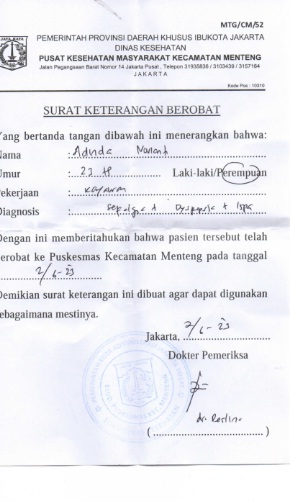 MTG/CM/52
JAYA RAYA
PEMERINTAH PROVINSI DAERAH KHUSUS IBUKOTA JAKARTA
DINAS KESEHATAN
PUSAT KESEHATAN MASYARAKAT KECAMATAN MENTENG
Jalan Pegangsaan Barat Nomor 14 Jakarta Pusat , Telepon 31935836 / 3103439 / 3157164
JAKARTA
Kode Pos : 10310
SURAT KETERANGAN BEROBAT
Yang bertanda tangan dibawah ini menerangkan bahwa:
Nama : Adinda
Umur : 23 th Laki-laki/Perempuan
Pekerjaan : karyawan
Diagnosis : + Dyspepsia + Ispa
Dengan ini memberitahukan bahwa pasien tersebut telah
berobat ke Puskesmas Kecamatan Menteng pada tanggal
2/6-23
Demikian surat keterangan ini dibuat agar dapat digunakan
sebagaimana mestinya.
Jakarta, 2/6-23
Dokter Pemeriksa
dr.
(..............................)